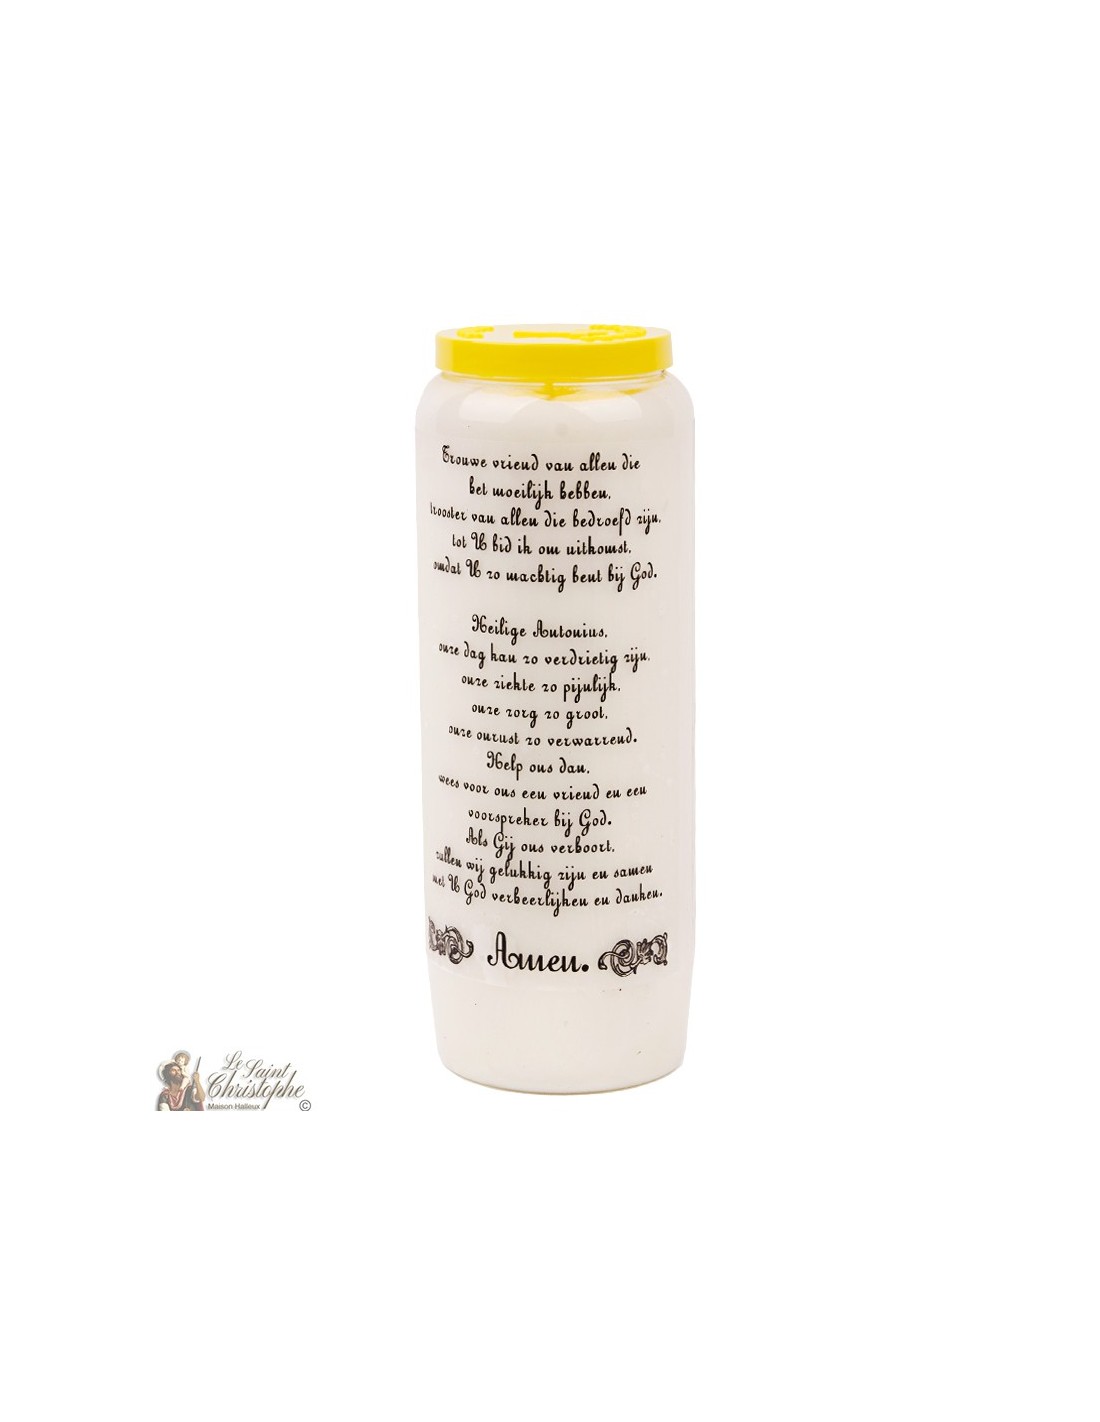 Trouwe vriend van allen die
het moeilijk hebben,
trooster van allen die bedroefd zijn,
tot U bid ik om uitkomst,
omdat U zo machtig bent bij God.
Heilige Antonius,
onze dag kan zo verdrietig zijn,
onze ziekte zo pijnlijk,
onze zorg zo groot,
onze onrust zo verwarrend.
Help ons dan,
wees voor ons een vriend en een
voorspreker bij God.
Als Gij ons verhoort,
zullen wij gelukkig zijn en samen
met U God verheerlijken en danken.
Amen.
Le Saint
Christophe
Maison Halleux
©